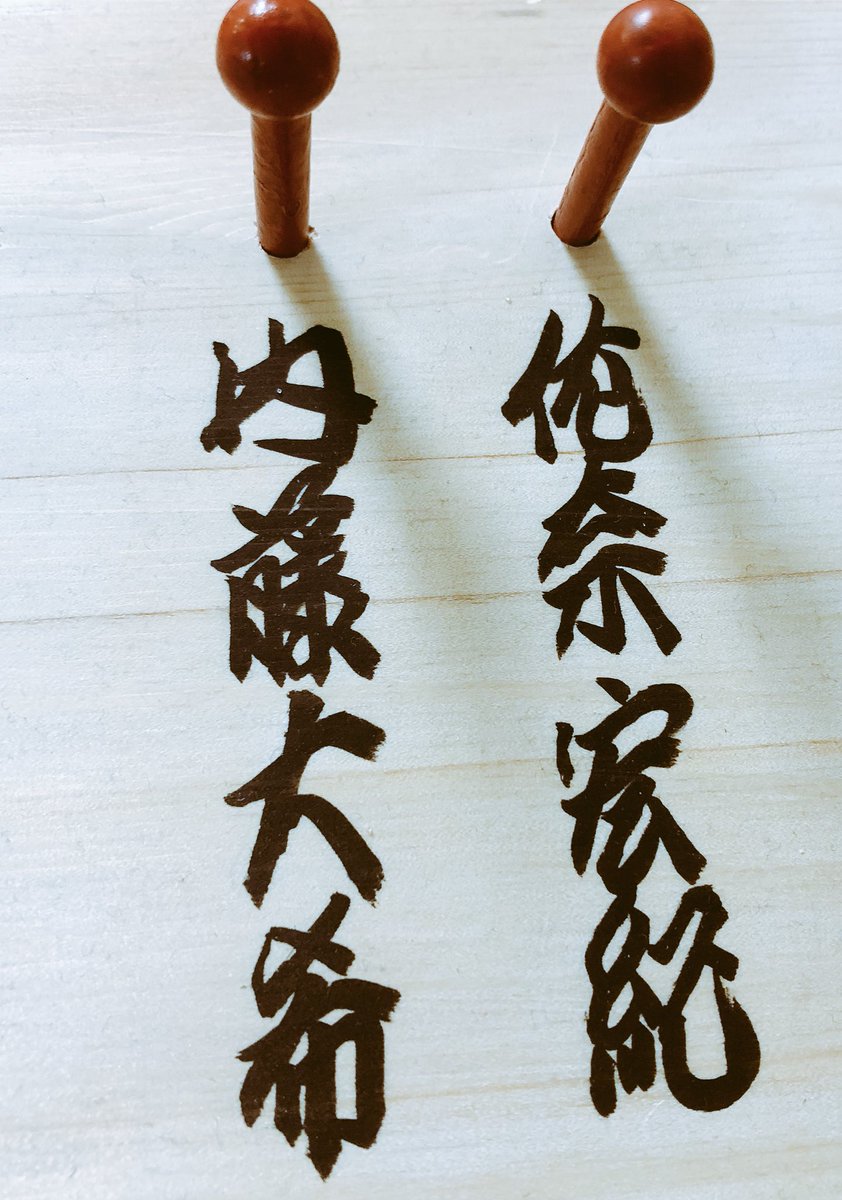 佐奈宏紀
内藤大希